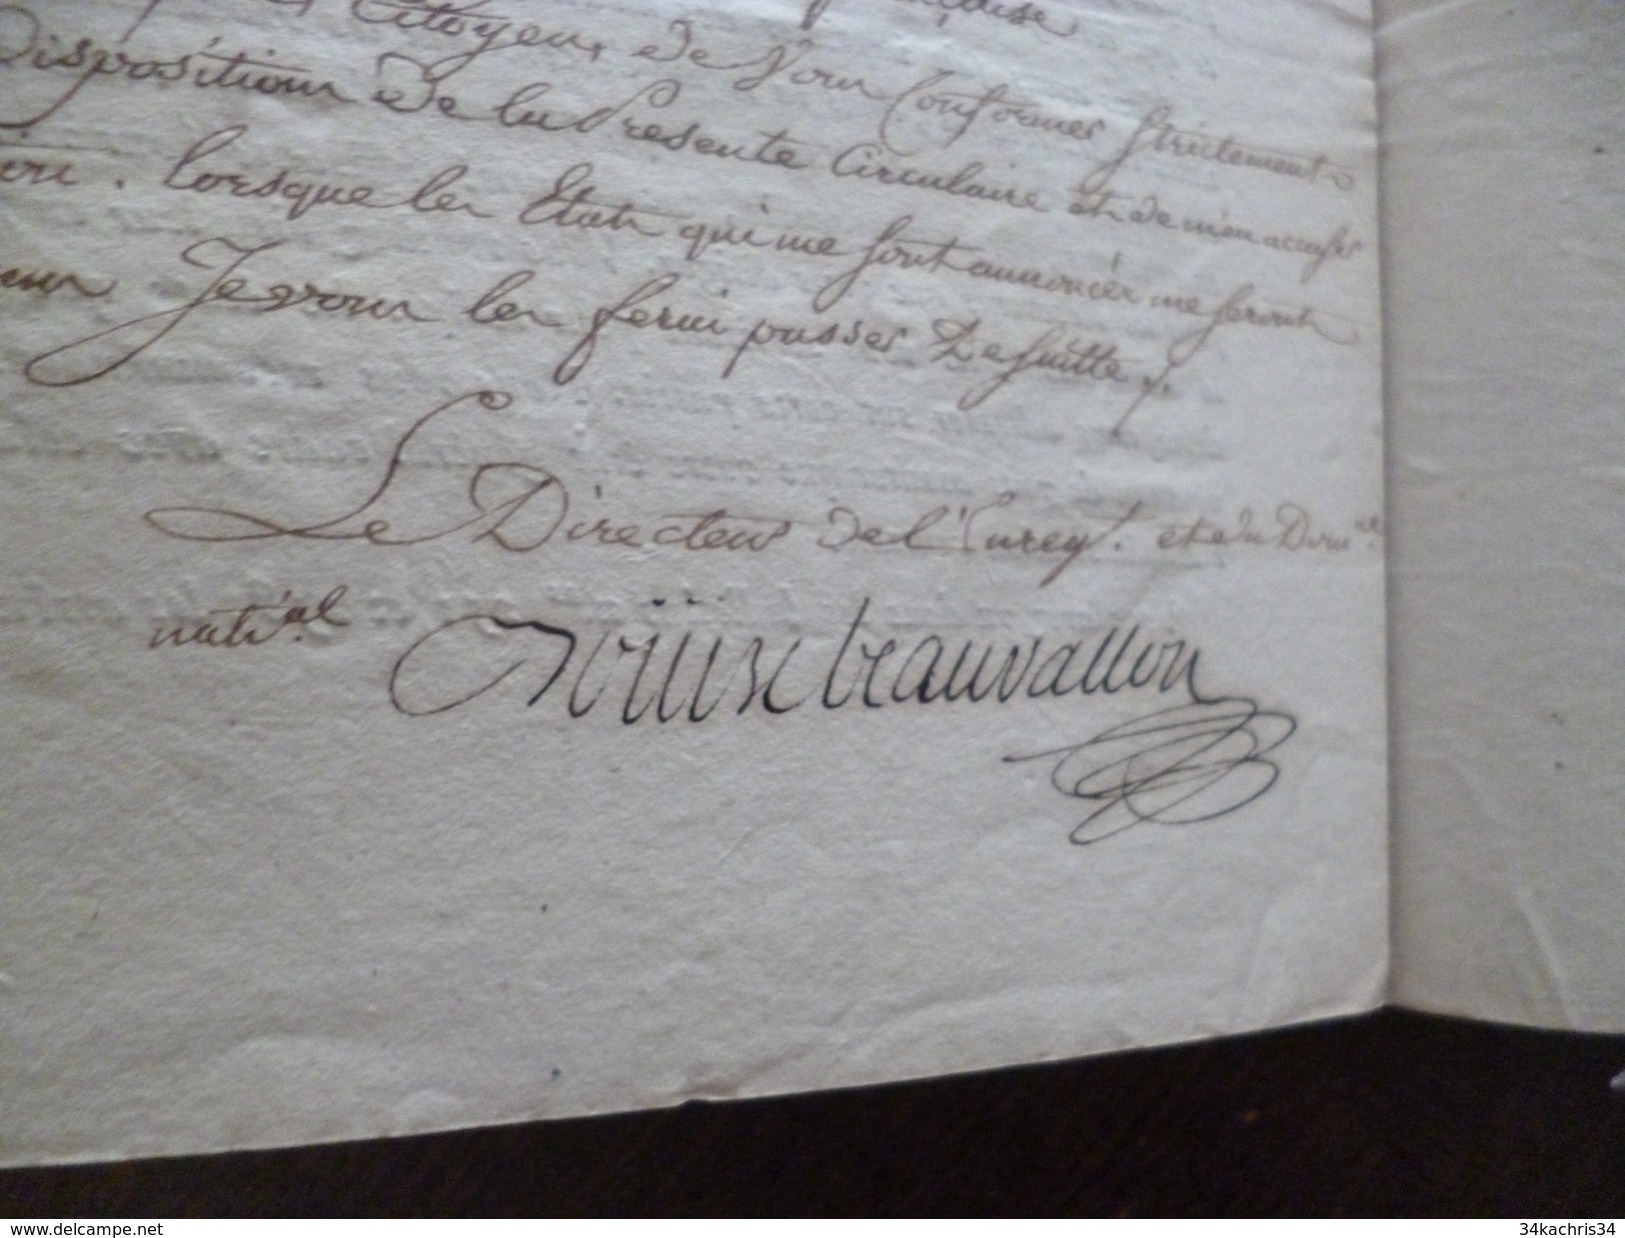 Citoyens, de Vous Conformer strictement
Dispositions de la Presente Circulaire et de m'en accuser
ion. lorsque les Etats qui me sont annoncés me seront
Je vous les ferai passer De suitte ./.
Le Directeur de l'Enreg.t et du Dom.ne
nati.al
beauvallon
www.delcampe.net
34kachris34